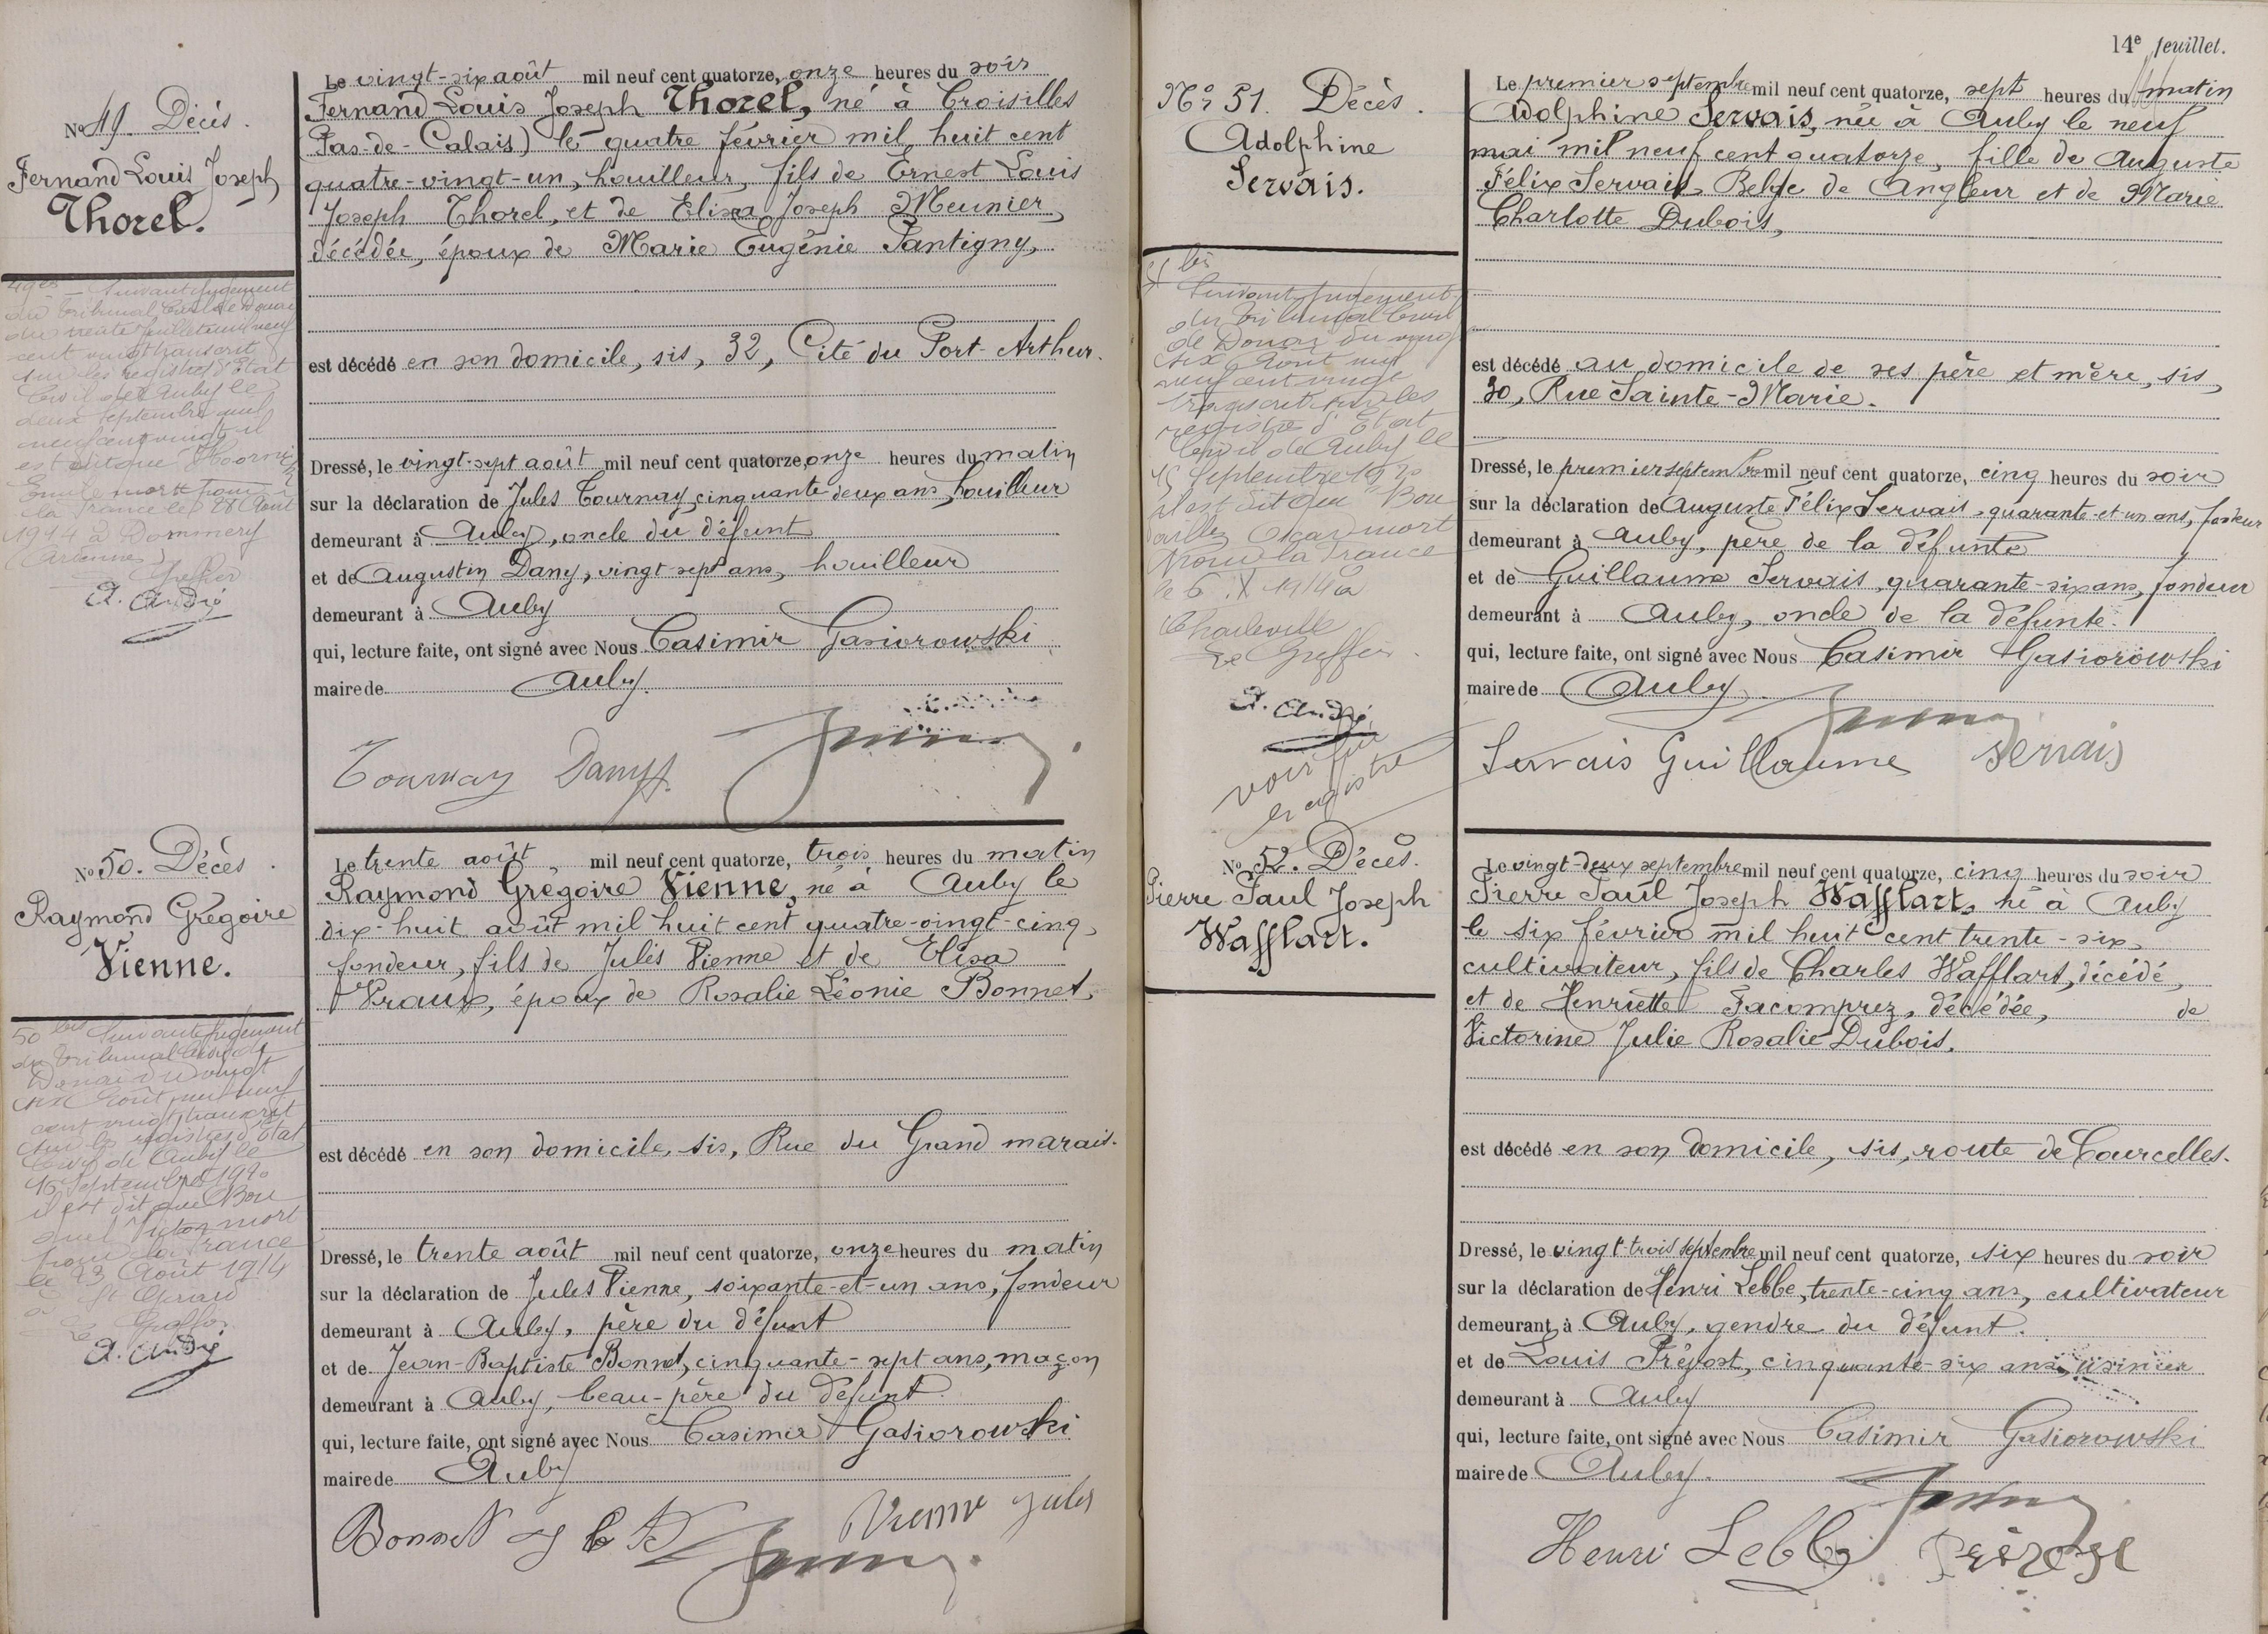 No 49. Décès.
Fernand Louis Joseph
Thorel.
Le vingt-six août mil neuf cent quatorze, onze heures du soir
Fernand Louis Joseph Thorel, né à Croisilles
(Pas-de-Calais) le quatre février mil huit cent
quatre-vingt-un, houilleur, fils de Ernest Louis
Joseph Thorel, et de Elisa Joseph Meunier,
décédée, époux de Marie Eugénie Santigny,
est décédé en son domicile, sis, 32, Cité du Port-Arthur.
Dressé, le vingt-sept août mil neuf cent quatorze, onze heures du matin
sur la déclaration de Jules Tournay, cinquante-deux ans, houilleur
demeurant à Auby, oncle du défunt
et de Augustin Dany, vingt-sept ans, houilleur
demeurant à Auby
qui, lecture faite, ont signé avec Nous Casimir Gasiorowski
maire de Auby.
Tournay Dany
49 bis Suivant jugement
du tribunal Civil de Douai
du trente juillet mil neuf
cent vingt transcrit
sur les registres d'Etat
Civil de Auby le
deux Septembre mil
neuf cent vingt il
est dit que
Emile mort pour
la France le 28 Août
1914 à Dommery
(Ardennes)
Le Greffier
A. André
No 50. Décès.
Raymond Grégoire
Vienne.
Le trente août mil neuf cent quatorze, trois heures du matin
Raymond Grégoire Vienne, né à Auby le
dix-huit août mil huit cent quatre-vingt-cinq,
fondeur, fils de Jules Vienne et de Elisa
Vraux, époux de Rosalie Léonie Bonnet,
est décédé en son domicile, sis, Rue du Grand marais.
Dressé, le trente août mil neuf cent quatorze, onze heures du matin
sur la déclaration de Jules Vienne, soixante-et-un ans, fondeur
demeurant à Auby, père du défunt
et de Jean-Baptiste Bonnet, cinquante-sept ans, maçon
demeurant à Auby, beau-père du défunt.
qui, lecture faite, ont signé avec Nous Casimir Gasiorowski
maire de Auby
Bonnet Vienne Jules
50 bis Suivant jugement
du Tribunal Civil de
Douai du vingt
six Août mil neuf
cent vingt transcrit
sur les registres d'Etat
Civil de Auby le
15 Septembre 1920
il est dit que
Victor mort
pour la France
le 23 Août 1914
à St Gérard
Le Greffier
A. André
14e feuillet.
No 51. Décès.
Adolphine
Servais.
Le premier septembre mil neuf cent quatorze, sept heures du matin
Adolphine Servais, née à Auby le neuf
mai mil neuf cent quatorze, fille de Auguste
Félix Servais, Belge de Angleur et de Marie
Charlotte Dubois,
est décédé au domicile de ses père et mère, sis,
30, Rue Sainte-Marie.
Dressé, le premier septembre mil neuf cent quatorze, cinq heures du soir
sur la déclaration de Auguste Félix Servais, quarante-et-un ans, fondeur
demeurant à Auby, père de la défunte
et de Guillaume Servais, quarante-six ans, fondeur
demeurant à Auby, oncle de la défunte.
qui, lecture faite, ont signé avec Nous Casimir Gasiorowski
maire de Auby.
Servais Guillaume Servais
51 bis
Suivant jugement
du Tribunal Civil
de Douai du vingt
six Août mil
neuf cent vingt
transcrit sur les
registres d'Etat
Civil de Auby le
15 Septembre 1920
il est dit que
Oscar mort
pour la France
le 6 X 1914 à
Charleville
Le Greffier
A. André
voir fin
registre
No 52. Décès.
Pierre Paul Joseph
Wafflart.
Le vingt-deux septembre mil neuf cent quatorze, cinq heures du soir
Pierre Paul Joseph Wafflart, né à Auby
le six février mil huit cent trente-six,
cultivateur, fils de Charles Wafflart, décédé,
et de Henriette Facomprez, décédée, de
Victorine Julie Rosalie Dubois.
est décédé en son domicile, sis, route de Courcelles.
Dressé, le vingt-trois septembre mil neuf cent quatorze, six heures du soir
sur la déclaration de Henri Lebbe, trente-cinq ans, cultivateur
demeurant à Auby, gendre du défunt.
et de Louis Prévost, cinquante-six ans, usinier
demeurant à Auby
qui, lecture faite, ont signé avec Nous Casimir Gasiorowski
maire de Auby.
Henri Lebbe